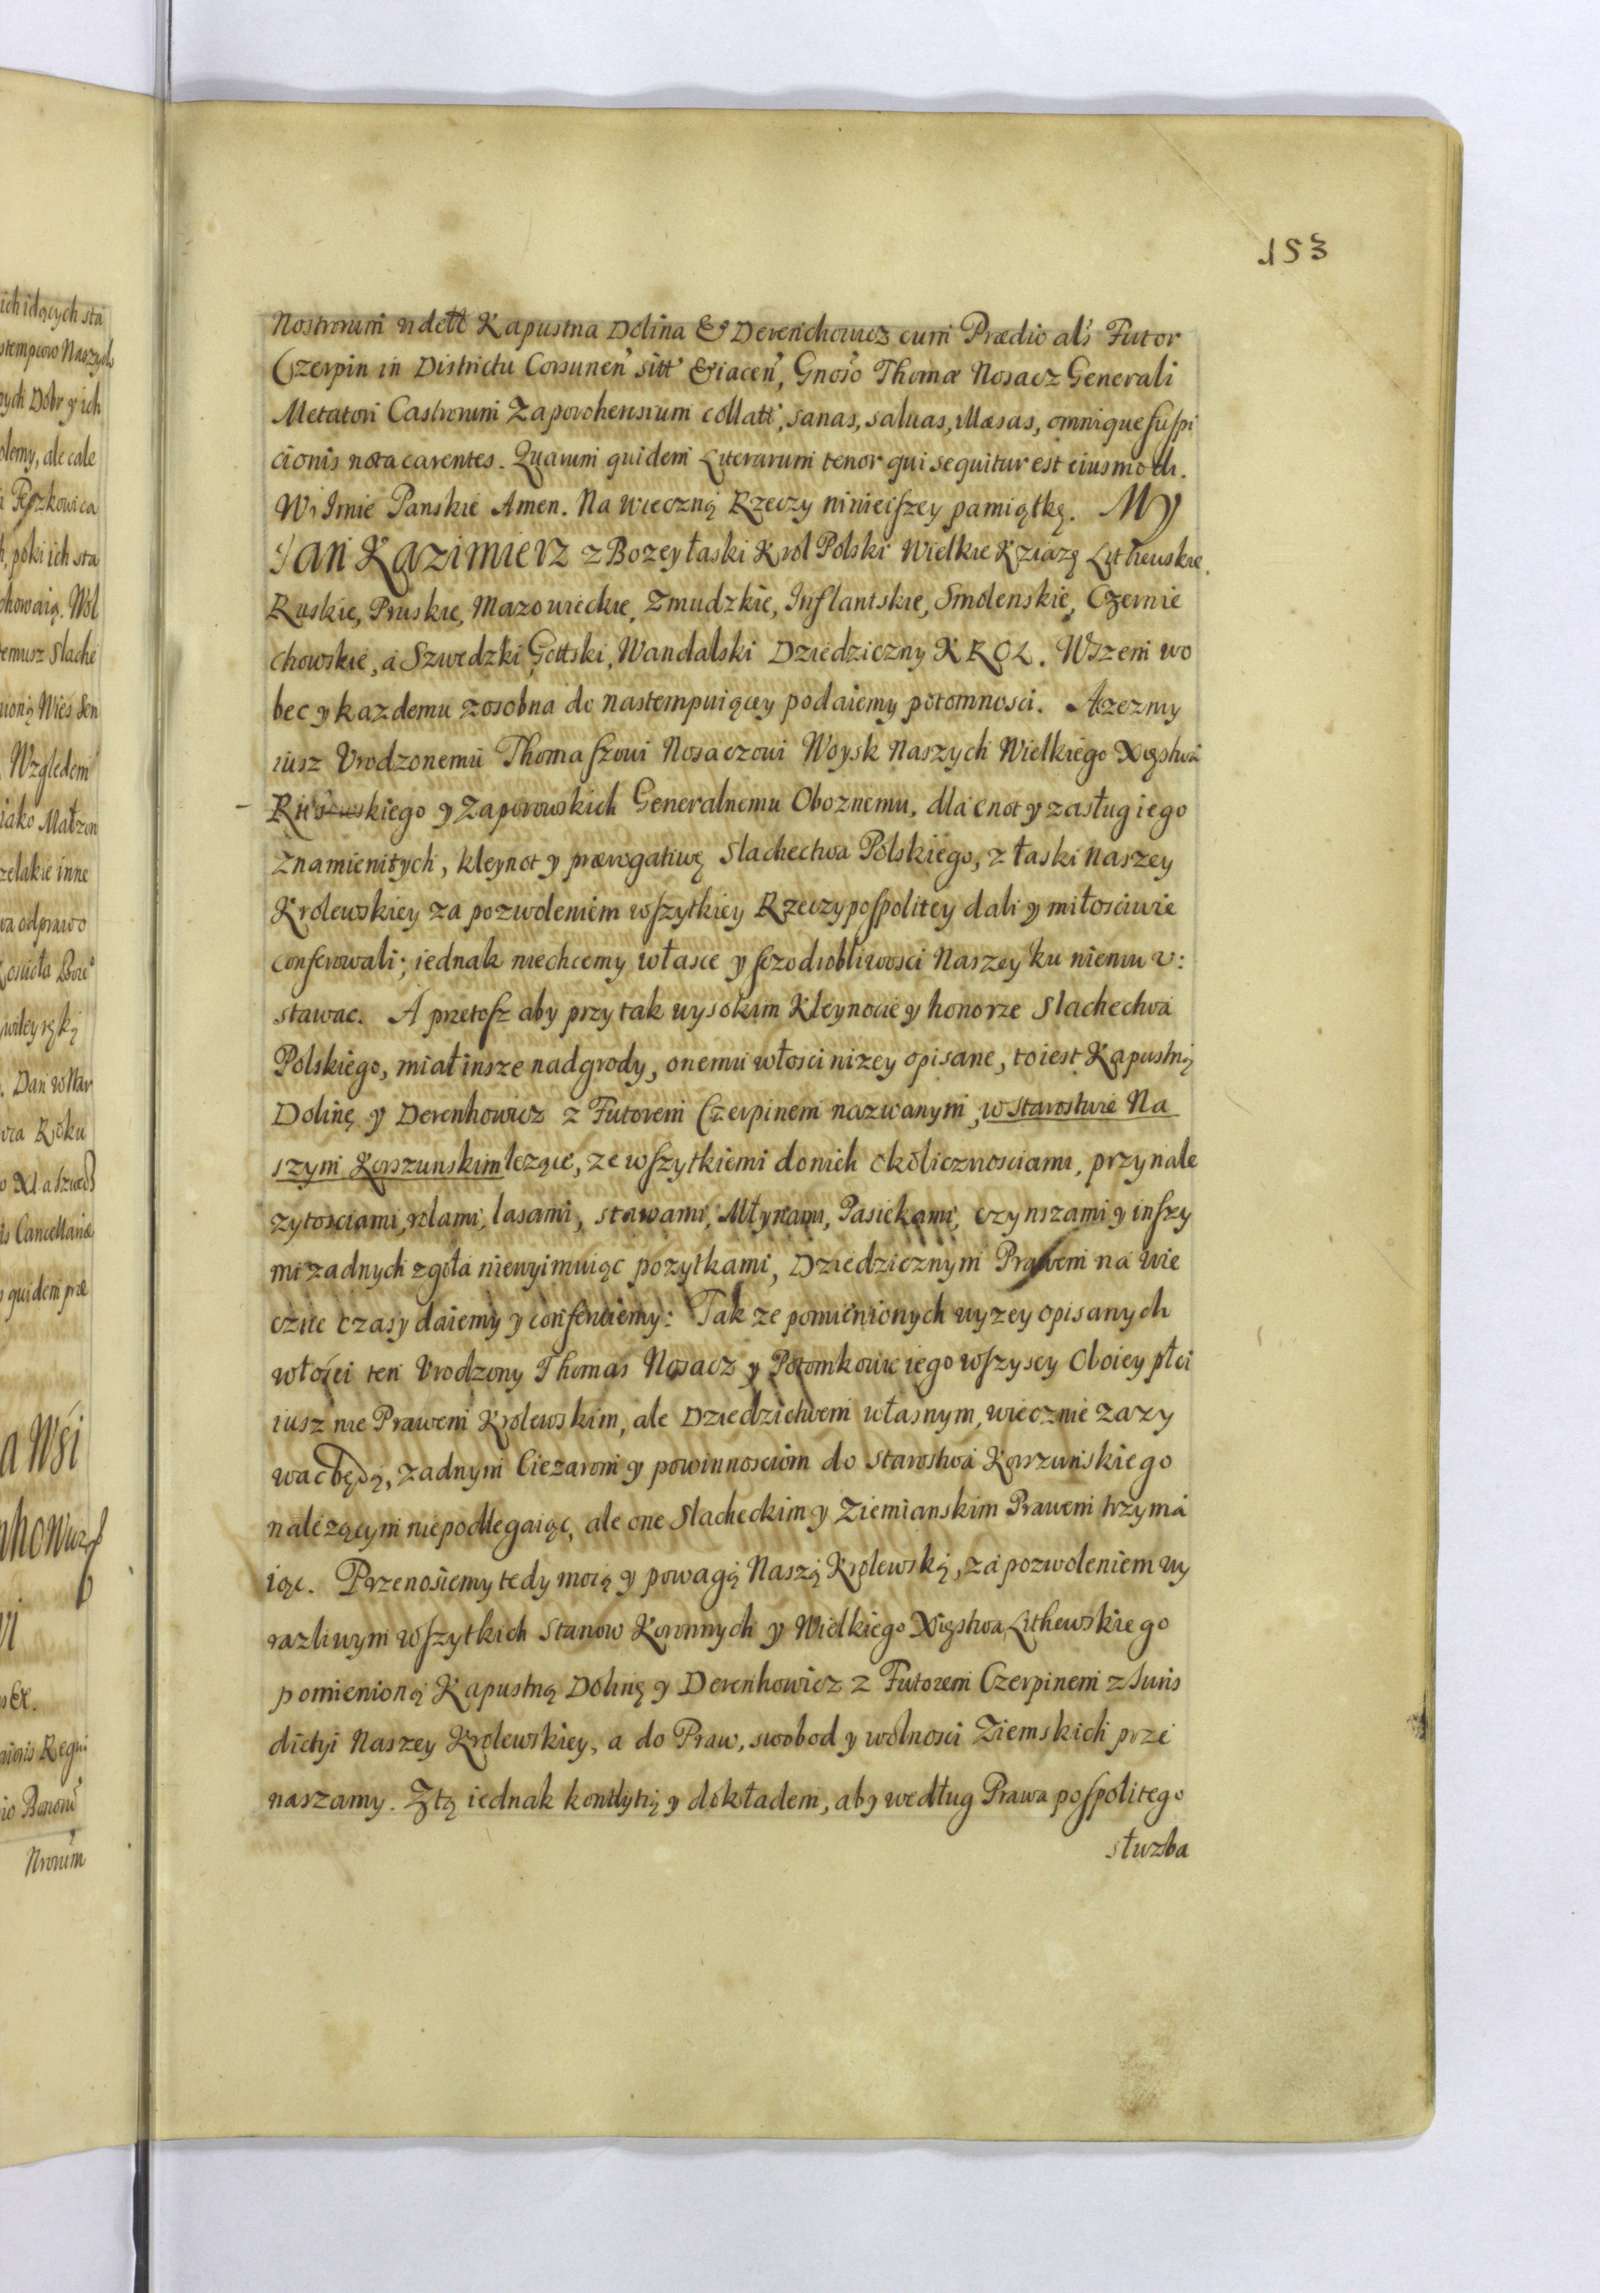 153
Nostrorum ndctt Kapustna Dolina & Derenchowicz cum Prædio als Futor
Czerpin in Districtu Corsunen sitt & iacen, Gnoso Thomæ Nosacz Generali
Metatori Castrorum Zaporohensium collatt, sanas, saluas, illæsas, omnique suspi
cionis nota carentes. Quarum quidem Literarum tenor qui sequitur est eiusmodi.
W Imie Panskie Amen. Na wieczną Rzeczy ninieiszey pamiątkę. My
Jan Kazimierz z Bozey łaski Krol Polski Wielkie Xziązę Lithewskie.
Ruskie, Pruskie, Mazowieckie, Zmudzkie, Inflantskie, Smolenskie, Czernie
chowskie, a Szwedzki, Gottski, Wandalski Dziedziczny KROL. Wszem wo
bec y kazdemu zosobna do nastempuiącey podaiemy potomnosci. Azezmy
iusz Vrodzonemu Thomaszowi Nosaczowi Woysk Naszych Wielkiego Xięstwa
Ruskiego y Zaporowskich Generalnemu Oboznemu, dla cnot y zasług iego
znamienitych, kleynot y prærogatiwę Slachectwa Polskiego, z łaski Naszey
Krolewskiey za pozwoleniem wszytkiey Rzeczypospolitey dali y miłosciwie
conferowali; iednak niechcemy własce y sczodrobliwosci Naszey ku niemu v:
stawac. A przetosz aby przy tak wysokim Kleynocie y honorze Slachectwa
Polskiego, miał insze nadgrody, onemu włosci nizey opisane, toiest Kapustną
Dolinę y Derenhowicz z Futorem Czerpinem nazwanym, w starostwie Na
szym Korszunskim lezące, ze wszytkiemi donich okolicznosciami, przynale
zytosciami, rolami, lasami, stawami, Młynami, Pasiekami, czynszami y inszy
mi zadnych zgoła niewyimuiąc pozytkami, Dziedzicznym Prawem na wie
czne czasy daiemy y conferuiemy: Tak ze pomienionych wyzey opisanych
włości ten Vrodzony Thomas Nosacz y Potomkowie iego wszyscy Oboiey płci
iusz nie Prawem Krolewskim, ale Dziedzictwem własnym, wiecznie zazy
wac będą, zadnym Ciezarom y powinnosciom do starostwa Korszunskiego
nalezącym niepodlegaiąc, ale one Slacheckim y Ziemianskim Prawem trzyma
iąc. Przenosiemy tedy mocą y powagą Naszą Krolewską, za pozwoleniem wy
razliwym wszytkich Stanow Koronnych y Wielkiego Xięstwa Lithewskiego
pomienioną Kapustną Dolinę y Derenhowicz z Futorem Czerpinem z Juris
dictyi Naszey Krolewskiey, a do Praw, swobod y wolnosci Ziemskich prze
naszamy. Z tą iednak kondytią y dokładem, aby według Prawa pospolitego
słuzba